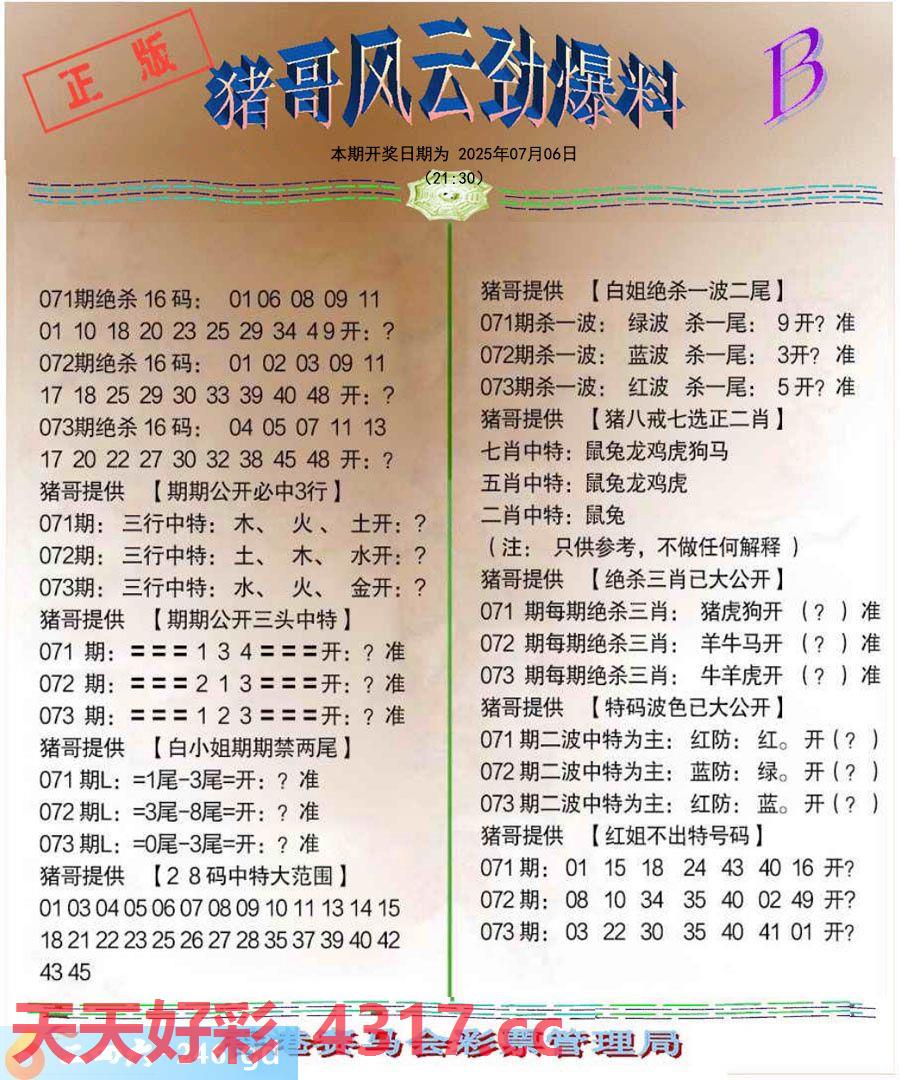 正版
猪哥风云劲爆料
B
本期开奖日期为 2025年07月06日
(21:30)
071期绝杀16码： 01 06 08 09 11
01 10 18 20 23 25 29 34 49开：?
072期绝杀16码： 01 02 03 09 11
17 18 25 29 30 33 39 40 48 开：?
073期绝杀16码： 04 05 07 11 13
17 20 22 27 30 32 38 45 48 开：?
猪哥提供 【期期公开必中3行】
071期： 三行中特： 木、 火、 土开：?
072期： 三行中特： 土、 木、 水开：?
073期： 三行中特： 水、 火、 金开：?
猪哥提供 【期期公开三头中特】
071 期：===134===开：? 准
072 期：===213===开：? 准
073 期：===123===开：? 准
猪哥提供 【白小姐期期禁两尾】
071期L：=1尾-3尾=开：? 准
072期L：=3尾-8尾=开：? 准
073期L：=0尾-3尾=开：? 准
猪哥提供 【28码中特大范围】
01 03 04 05 06 07 08 09 10 11 13 14 15
18 21 22 23 25 26 27 28 35 37 39 40 42
43 45
猪哥提供 【白姐绝杀一波二尾】
071期杀一波： 绿波 杀一尾： 9开? 准
072期杀一波： 蓝波 杀一尾： 3开? 准
073期杀一波： 红波 杀一尾： 5开? 准
猪哥提供 【猪八戒七选正二肖】
七肖中特：鼠兔龙鸡虎狗马
五肖中特：鼠兔龙鸡虎
二肖中特：鼠兔
（注： 只供参考，不做任何解释）
猪哥提供 【绝杀三肖已大公开】
071 期每期绝杀三肖： 猪虎狗开 （?）准
072 期每期绝杀三肖： 羊牛马开 （?）准
073 期每期绝杀三肖： 牛羊虎开 （?）准
猪哥提供 【特码波色已大公开】
071期二波中特为主：红防：红。开(?)
072期二波中特为主：蓝防：绿。开(?)
073期二波中特为主：红防：蓝。开(?)
猪哥提供 【红姐不出特号码】
071期：01 15 18 24 43 40 16 开?
072期：08 10 34 35 40 02 49 开?
073期：03 22 30 35 40 41 01 开?
天天好彩 4317.cc
港赛马会彩票管理局